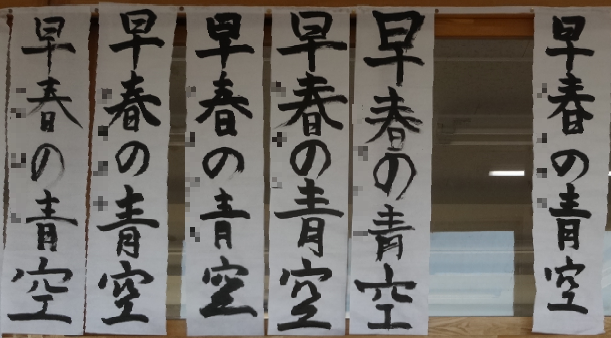 早春の青空
早春の青空
早春の青空
早春の青空
早春の青空
早春の青空